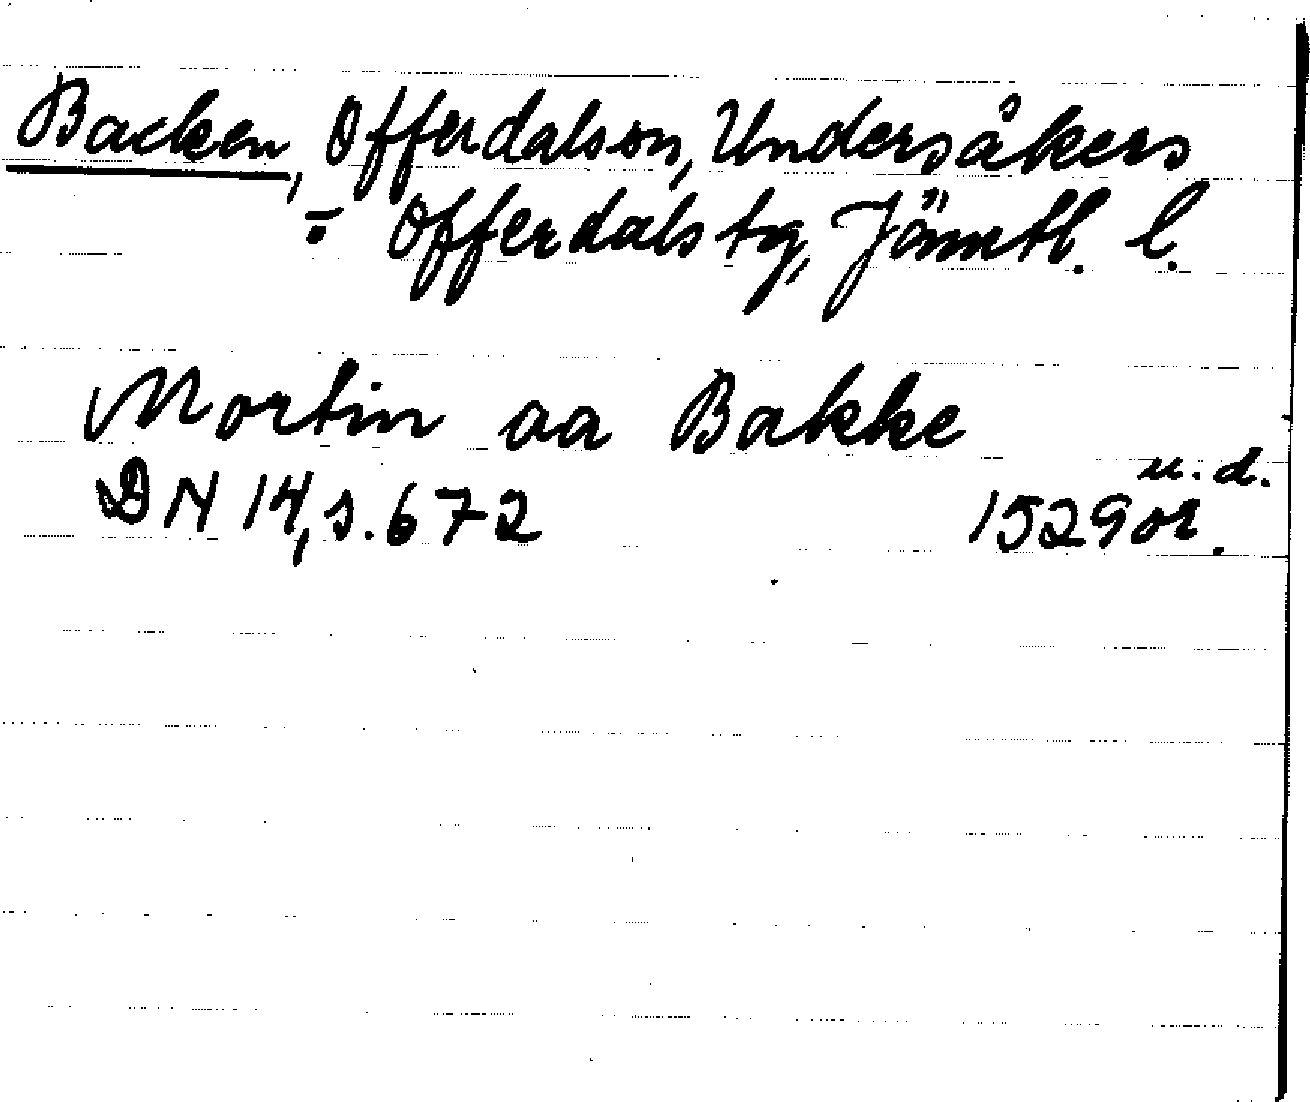 Backen, Offerdals sn, Undersåkers
o. Offerdals tg, Jämtl. l.
Mortin aa Bakke
DN 14, s. 672 1529 or. u. d.